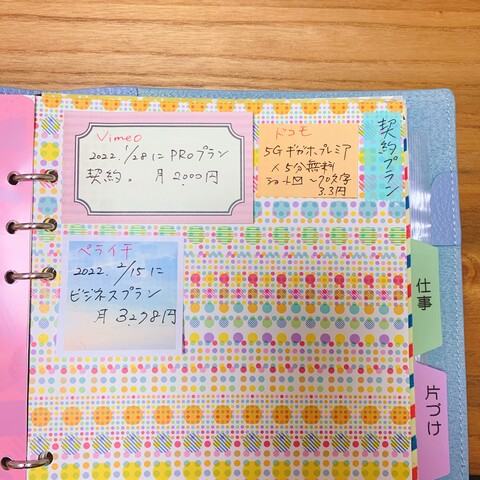 Vimeo
2022.1/28に PROプラン
契約。月2000円
ドコモ
5Gギガホ.プレミア
5分無料
~70文字
3.3円
契約プラン
ペライチ
2022.2/15に
ビジネスプラン
月3,278円
仕事
片づけ